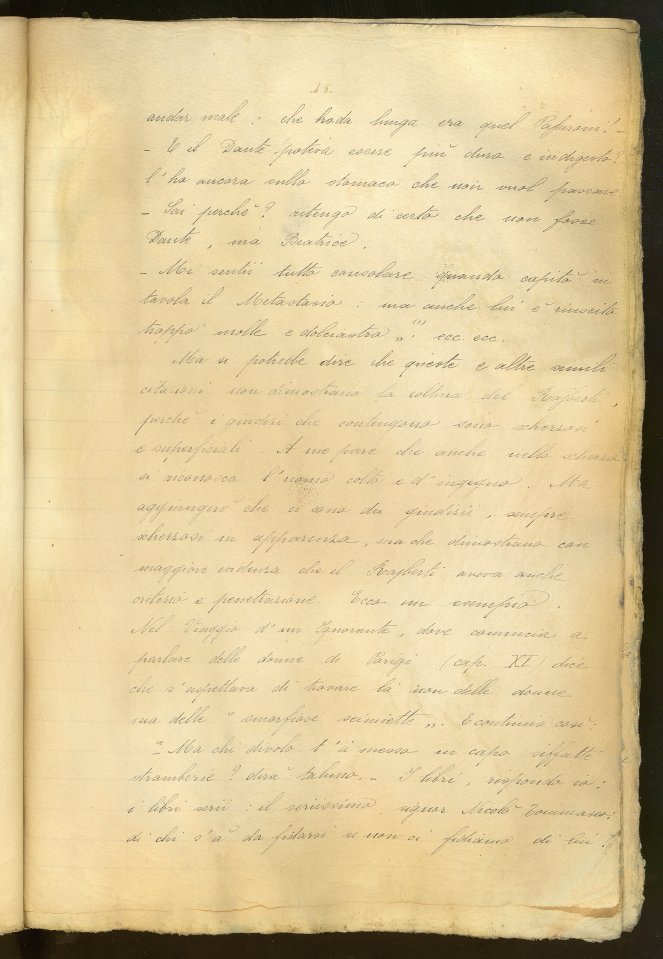 48.
andar male: che broda lunga era quel Passeroni! -
- E il Dante poteva essere più duro e indigesto?
l'ho ancora sullo stomaco che non vuol passare.
- Sai perchè? ritengo di certo che non fosse
Dante, ma Beatrice.
- Mi sentii tutto consolare quando capitò in
tavola il Metastasio: ma anche lui è riuscito
troppo molle e dolciastro „. (1) ecc. ecc.
Ma si potrebbe dire che queste e altre simili
citazioni non dimostrano la coltura del Rajberti,
perchè i giudizi che contengono sono scherzosi
e superficiali. A me pare che anche nello scherzo
si riconosca l'uomo colto e d'ingegno. Ma
aggiungerò che ci sono dei giudizii, sempre
scherzosi in apparenza, ma che dimostrano con
maggiore evidenza che il Rajberti aveva anche
criterio e penetrazione. Ecco un esempio.
Nel Viaggio d'un Ignorante, dove comincia a
parlare delle donne di Parigi (cap. XI) dice
che s'aspettava di trovare là non delle donne
ma delle “ smorfiose scimiette „. E continua così:
“ Ma chi diavolo t'à messo in capo siffatte
stramberie? dirà taluno. - I libri, rispondo io;
i libri serii: il seriissimo signor Nicolò Tommaseo:
di chi s'à da fidarsi se non ci fidiamo di lui?